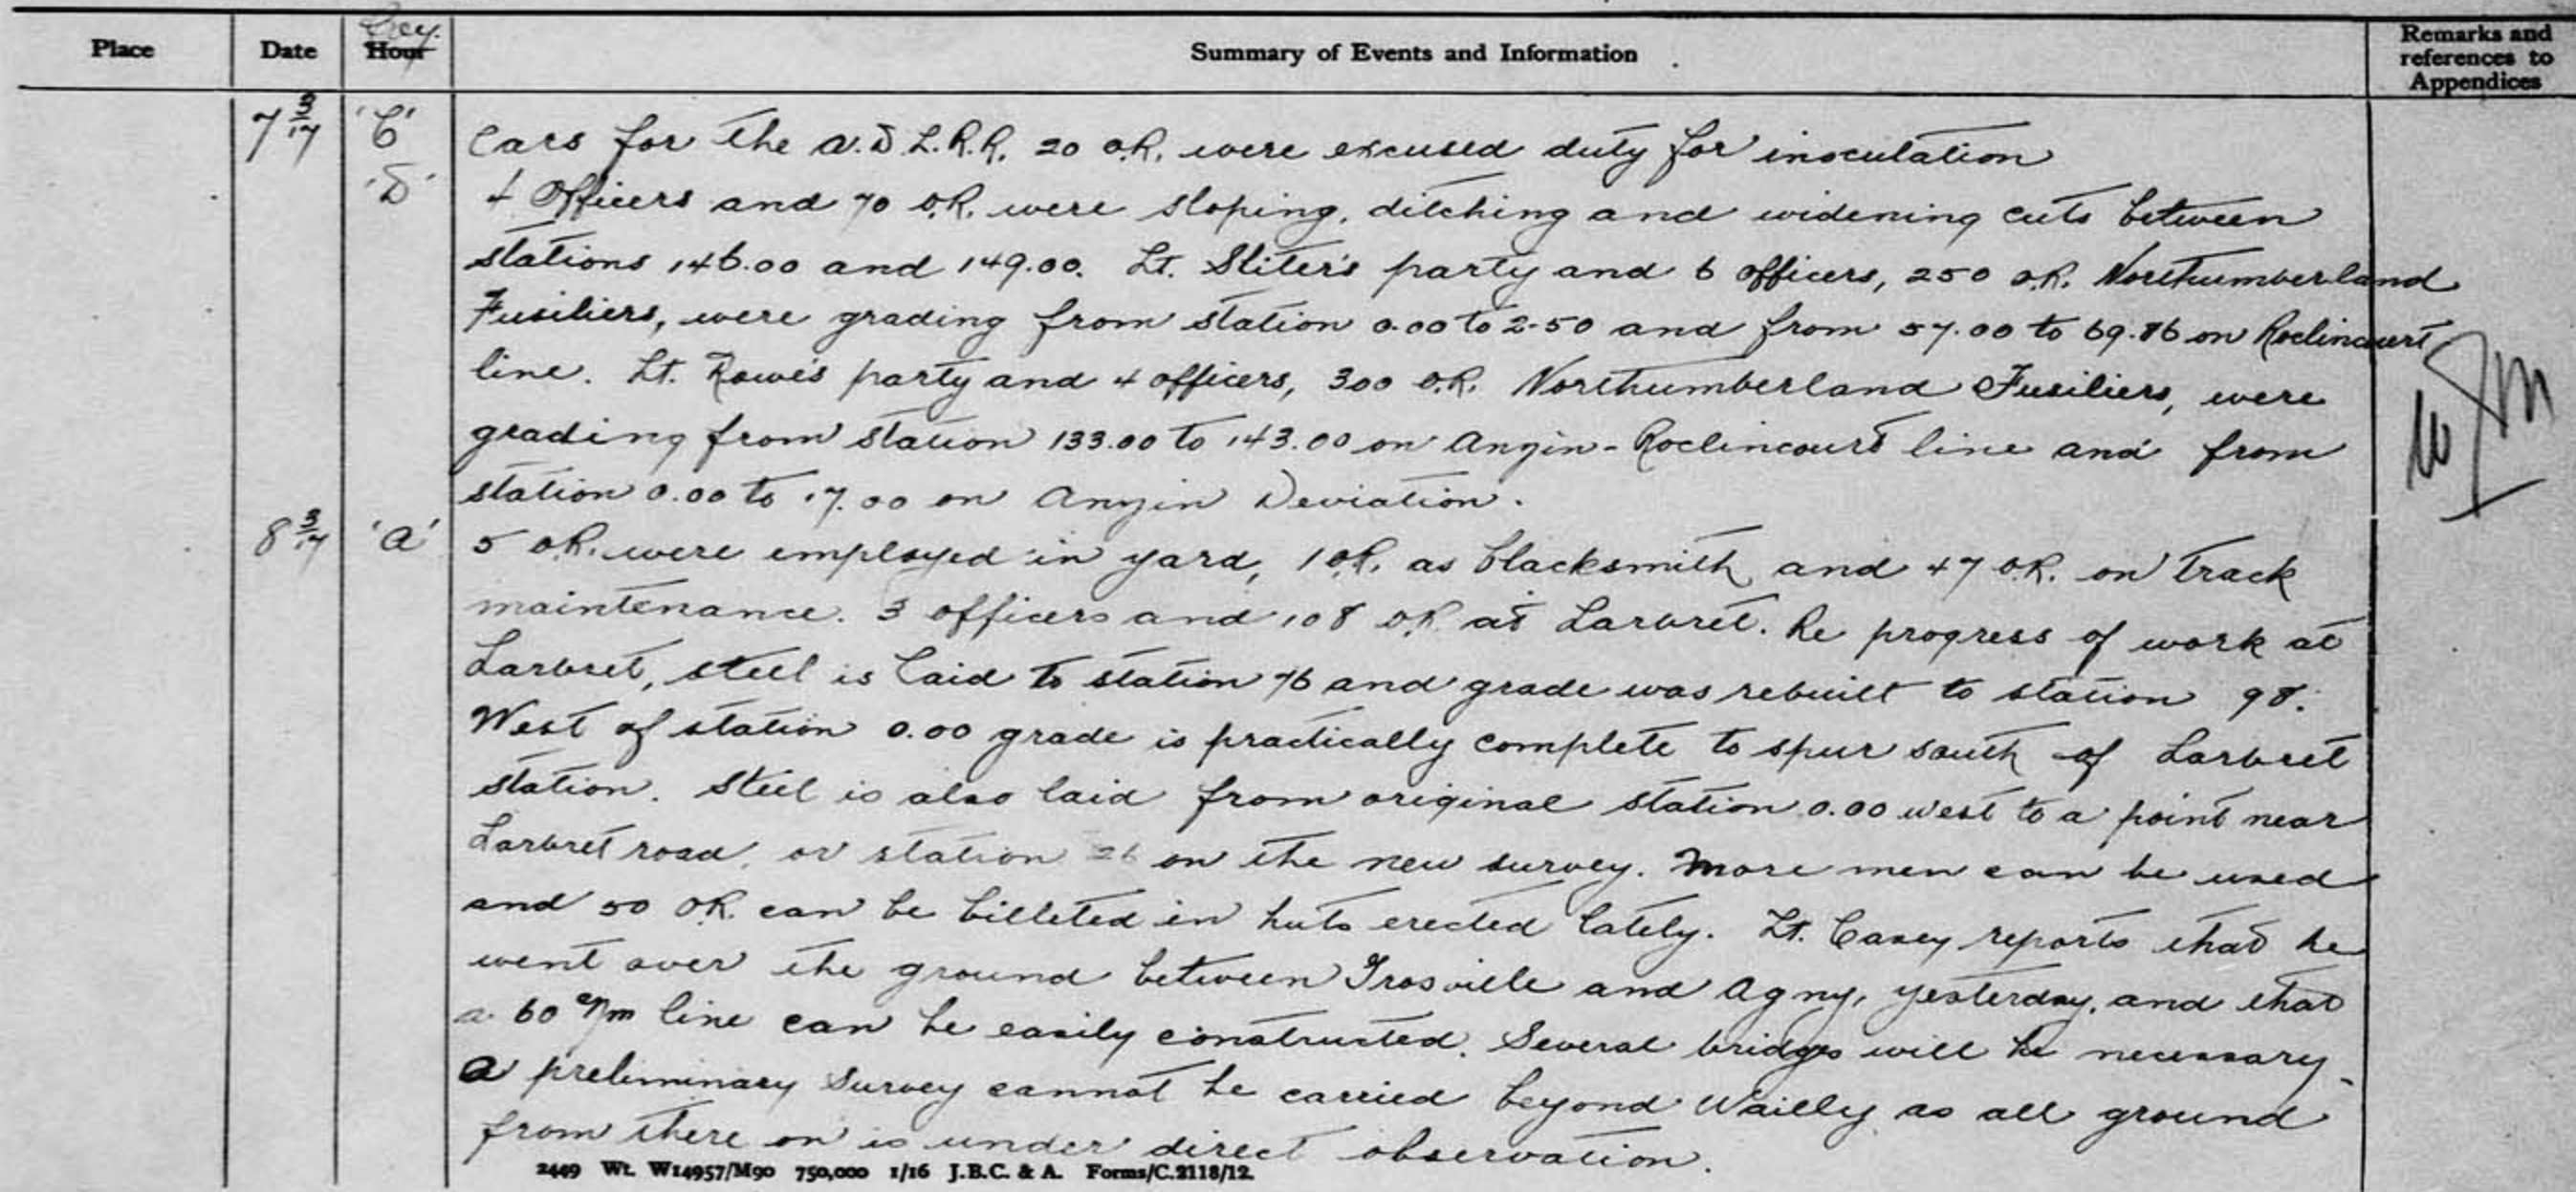 Place Date Hour Coy. Summary of Events and Information Remarks and references to Appendices
7 3/17 'C' Cars for the A.D.L.R.R. 20 O.R. were excused duty for inoculation
'D' 4 Officers and 70 O.R. were sloping, ditching and widening cuts between
stations 146.00 and 149.00. Lt. Sliter's party and 6 officers, 250 O.R. Northumberland
Fusiliers, were grading from station 0.00 to 2.50 and from 57.00 to 69.86 on Roclincourt
line. Lt. Rowe's party and 4 officers, 300 O.R. Northumberland Fusiliers, were
grading from station 133.00 to 143.00 on Anzin-Roclincourt line and from
station 0.00 to 17.00 on Anzin Deviation.
8 3/17 'A' 5 O.R. were employed in yard, 1 O.R. as blacksmith and 47 O.R. on track
maintenance. 3 officers and 108 O.R. at Larbret. Re progress of work at
Larbret, steel is laid to station 76 and grade was rebuilt to station 98.
West of station 0.00 grade is practically complete to spur south of Larbret
station. Steel is also laid from original station 0.00 west to a point near
Larbret road, or station 26 on the new survey. More men can be used
and 50 O.R. can be billeted in huts erected lately. Lt. Casey reports that he
went over the ground between Grosville and Agny, yesterday, and that
a 60 c/m line can be easily constructed. Several bridges will be necessary.
A preliminary survey cannot be carried beyond Wailly as all ground
from there on is under direct observation.
2449 Wt. W14957/M90 750,000 1/16 J.B.C. & A. Forms/C.2118/12.